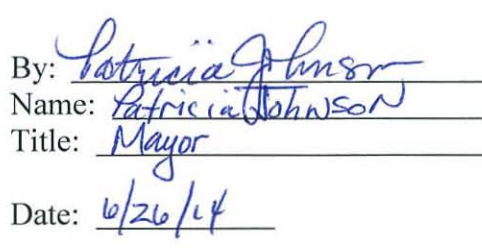 By: Patricia Johnson
Name: Patricia Johnson
Title: Mayor
Date: 6/26/14